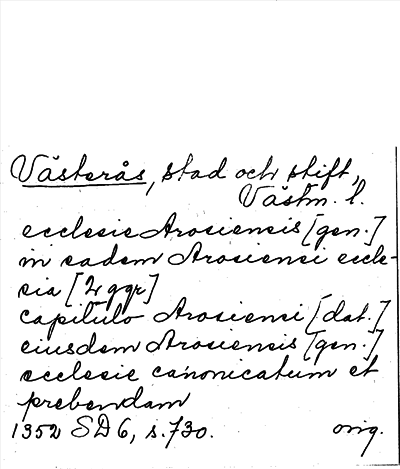 Västerås, stad och stift,
Västm. l.
ecclesie Arosiensis [gen.]
in eadem Arosiensi eccle-
sia [2 ggr]
capitulo Arosiensi [dat.]
eiusdem Arosiensis [gen.]
ecclesie canonicatum et
prebendam
1352 SD 6, s. 730. orig.